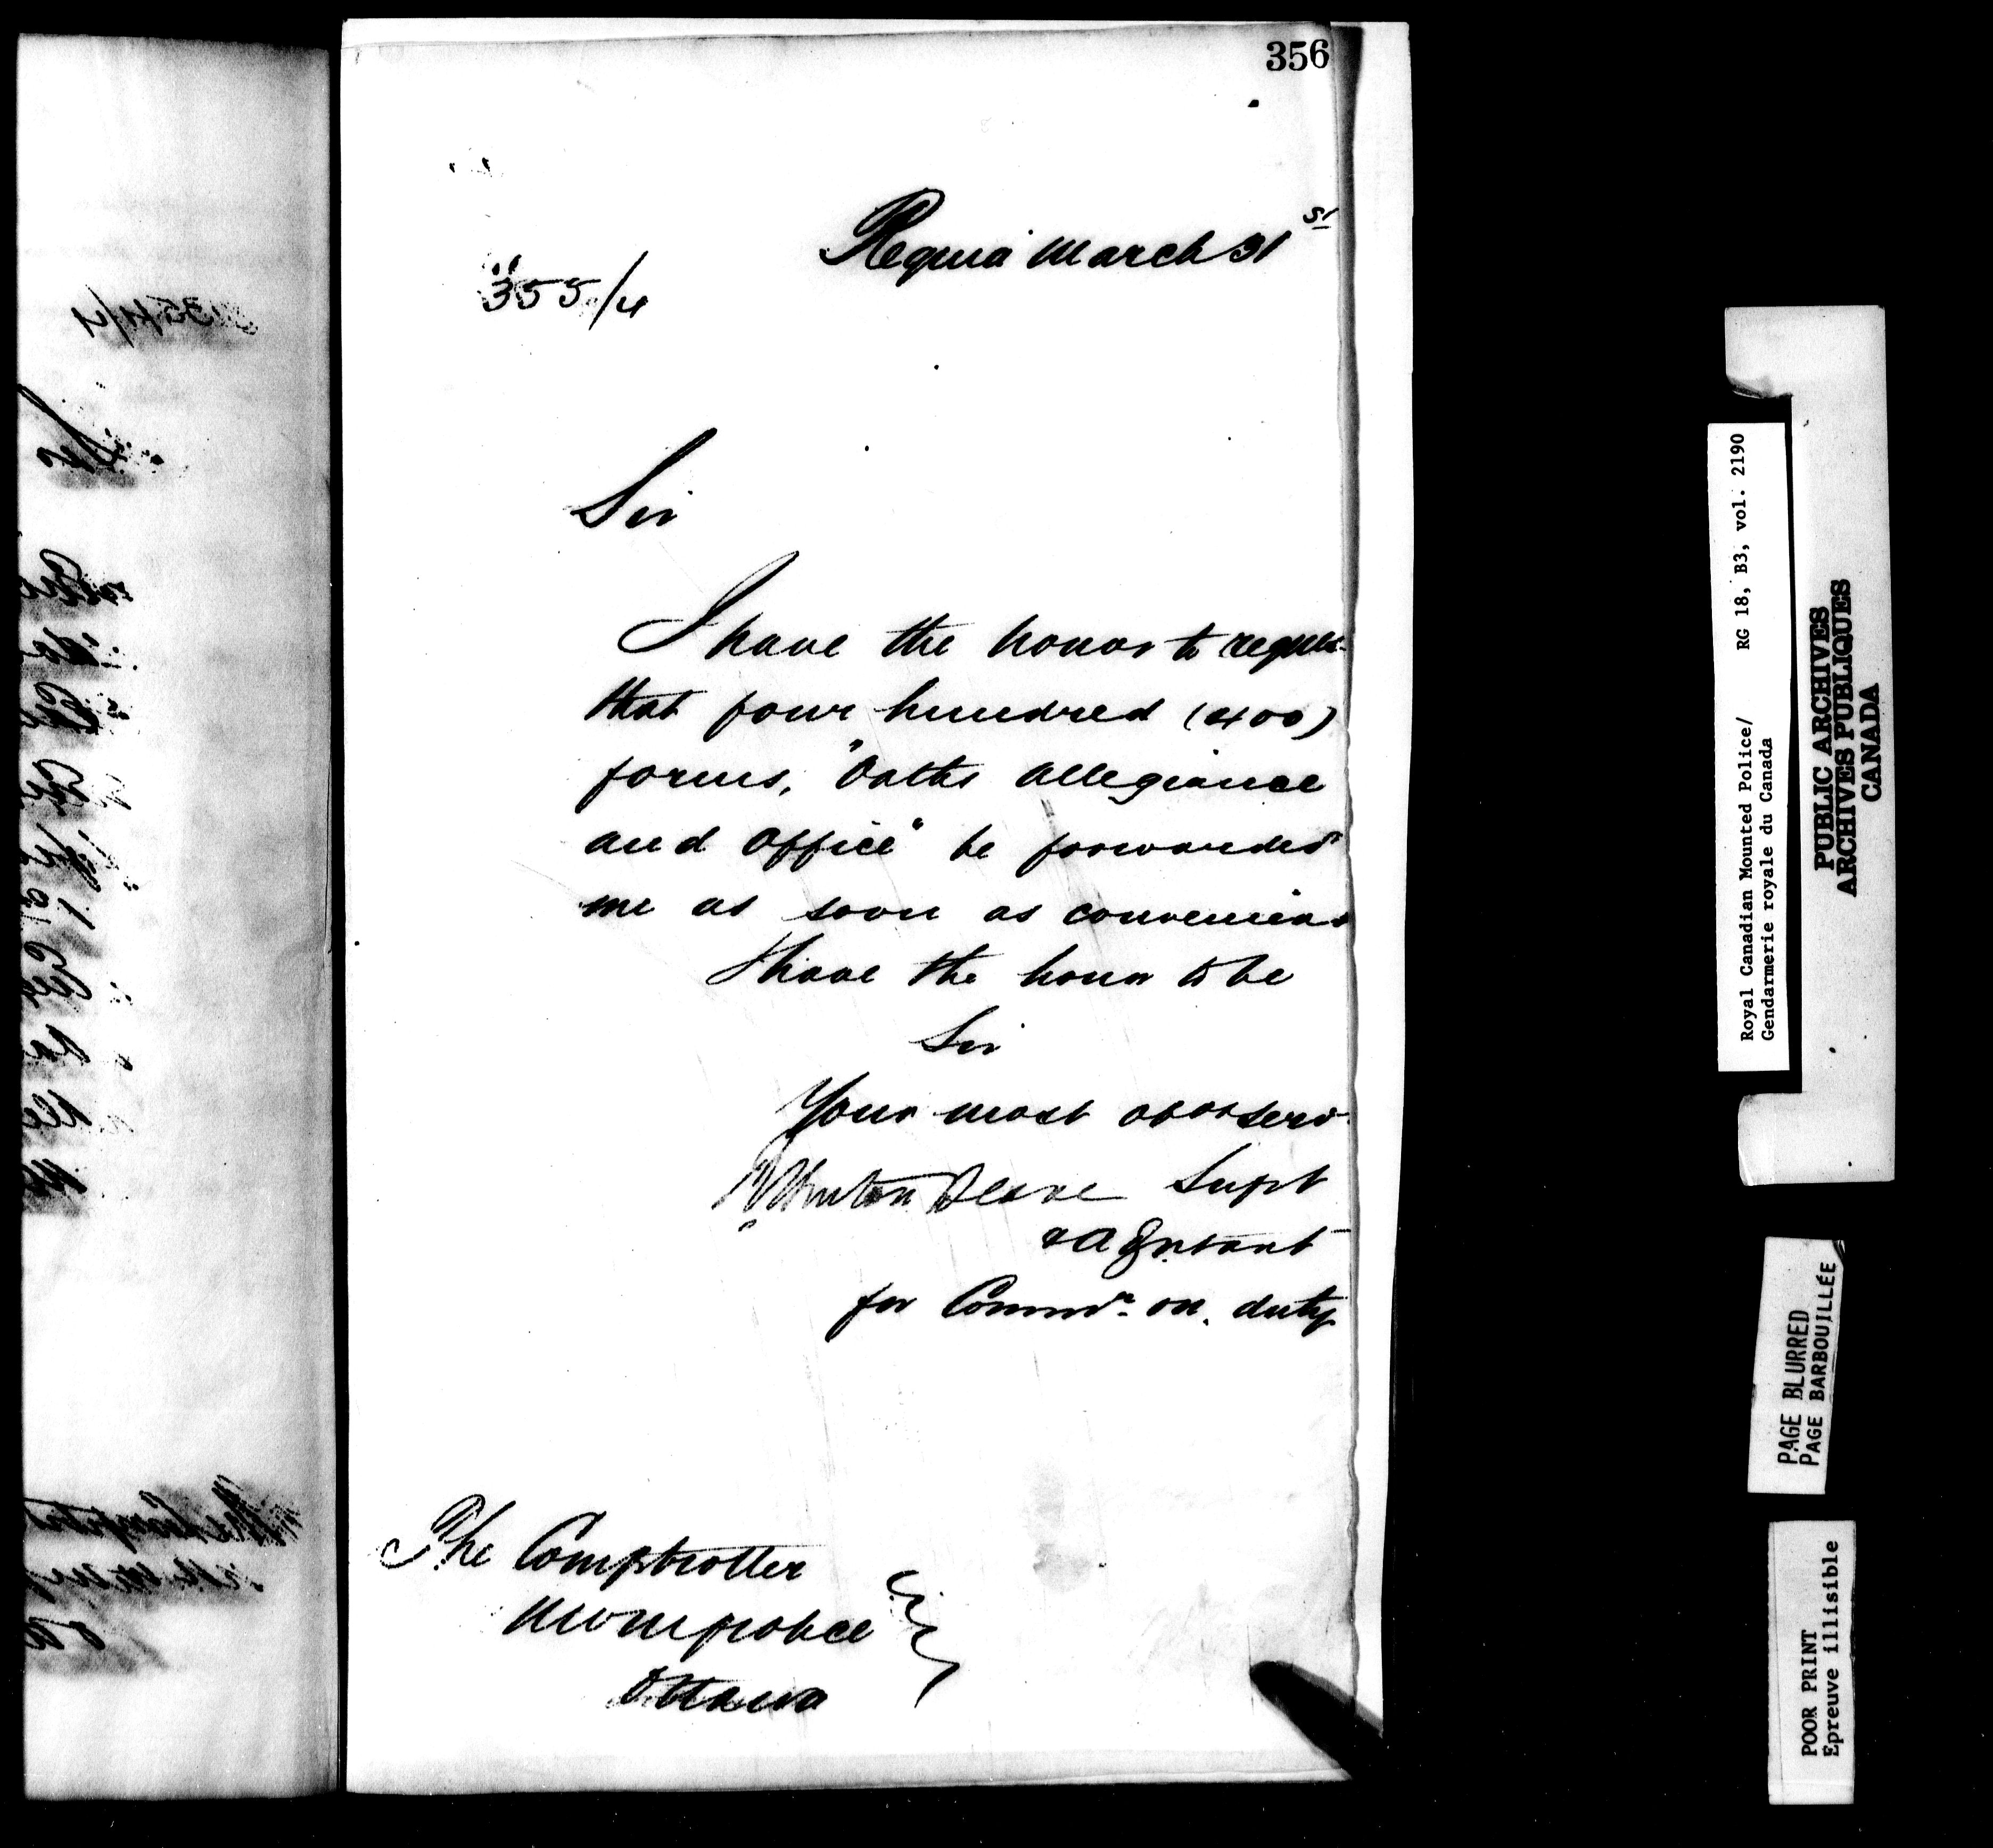 356
Regina March 31st
355/4
Sir
I have the honor to reques
that four hundred (400)
forms, "Oaths Allegiance
and Office" be forwarded
me as soon as convenien
I have the honor to be
Sir
Your most obdt serv
Supt
& Adjutant
for Commr on duty
The Comptroller
NWM police
Ottawa
Royal Canadian Mounted Police/ RG 18, B3, vol. 2190
Gendarmerie royale du Canada
PUBLIC ARCHIVES
ARCHIVES PUBLIQUES
CANADA
PAGE BLURRED
PAGE BARBOUILLÉE
POOR PRINT
Epreuve illisible